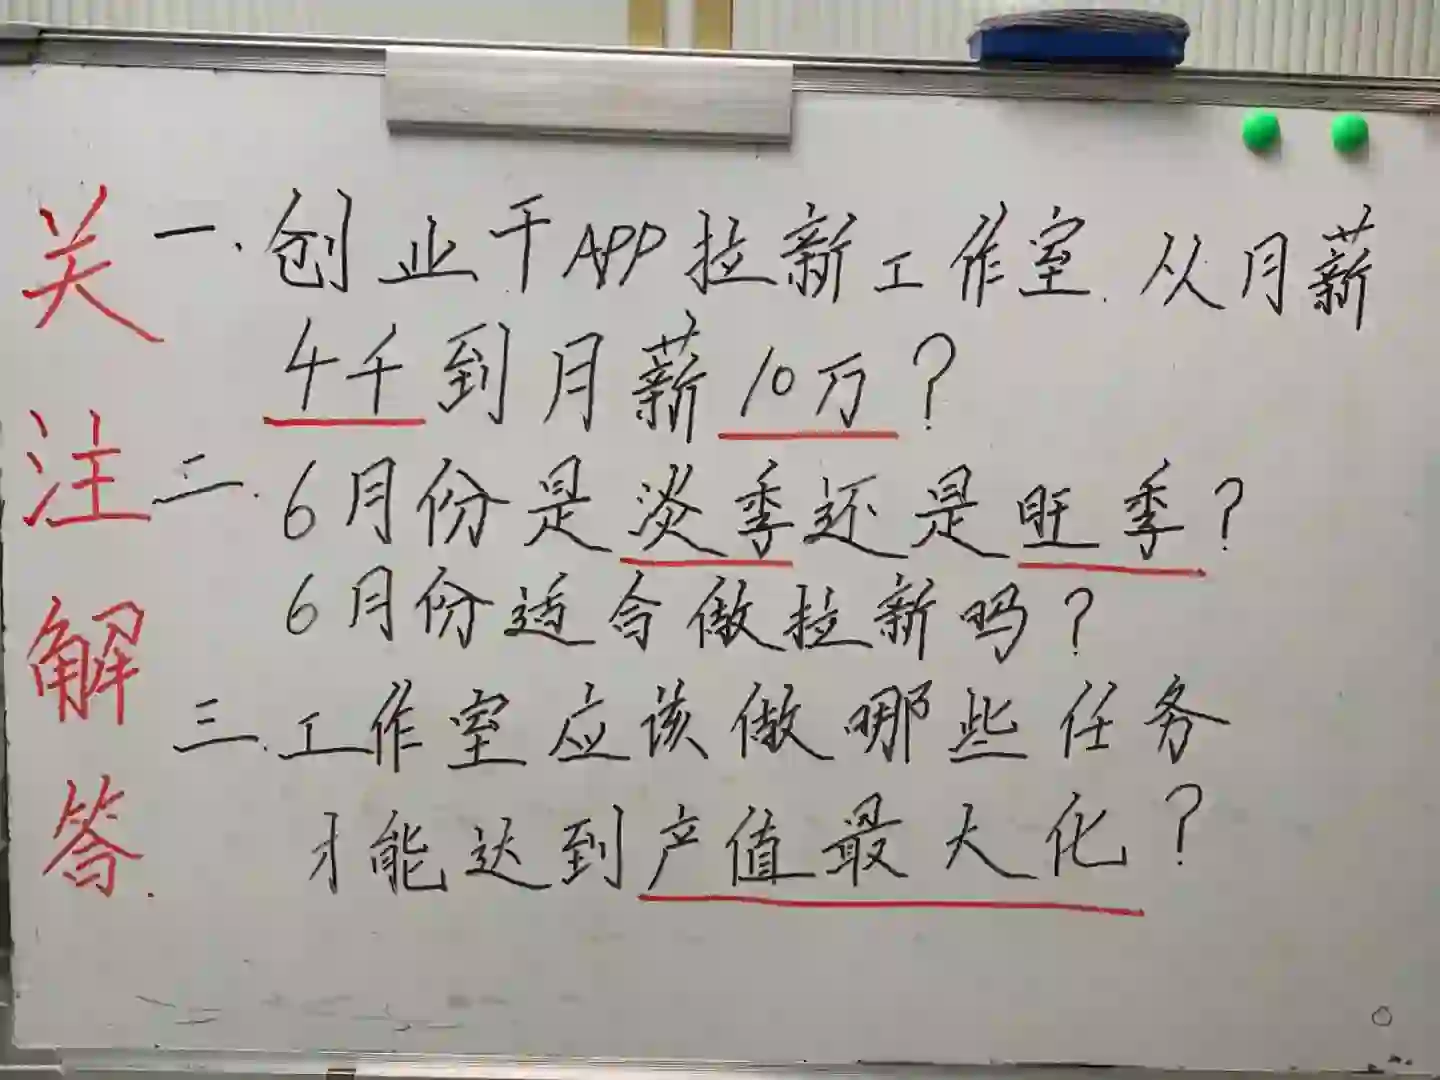 关注解答.
一.创业干APP拉新工作室.从月薪
4千到月薪10万?
二.6月份是淡季还是旺季?
6月份适合做拉新吗?
三.工作室应该做哪些任务
才能达到产值最大化?